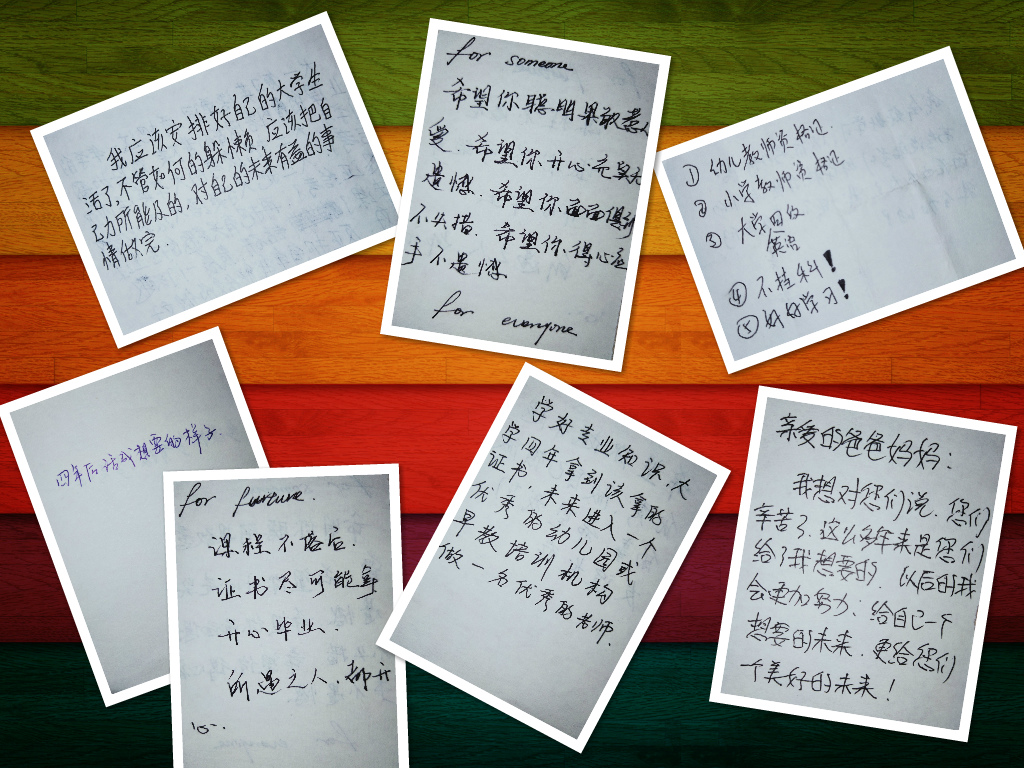 我应该安排好自己的大学生
活了,不管如何的躲懒,应该把自
己力所能及的,对自己的未来有益的事
情做完.
for someone
希望你聪明果敢惹人
爱.希望你开心充实无
遗憾.希望你面面俱到
不失措.希望你得心应
手不遗憾
for everyone
① 幼儿教师资格证
② 小学教师资格证
③ 大学四级
④ 不挂科!
⑤ 好好学习!
四年后活成想要的样子.
for furture.
课程不落后.
证书尽可能拿
开心毕业、
所遇之人,都开
心.
学好专业知识,大
学四年拿到该拿的
证书 未来进入一个
优秀的幼儿园或
早教培训机构
做一名优秀的老师.
亲爱的爸爸妈妈:
我想对您们说,您们
辛苦了,这么多年来是您们
给了我想要的,以后的我
会更加努力、给自己一个
想要的未来,更给您们
一个美好的未来!